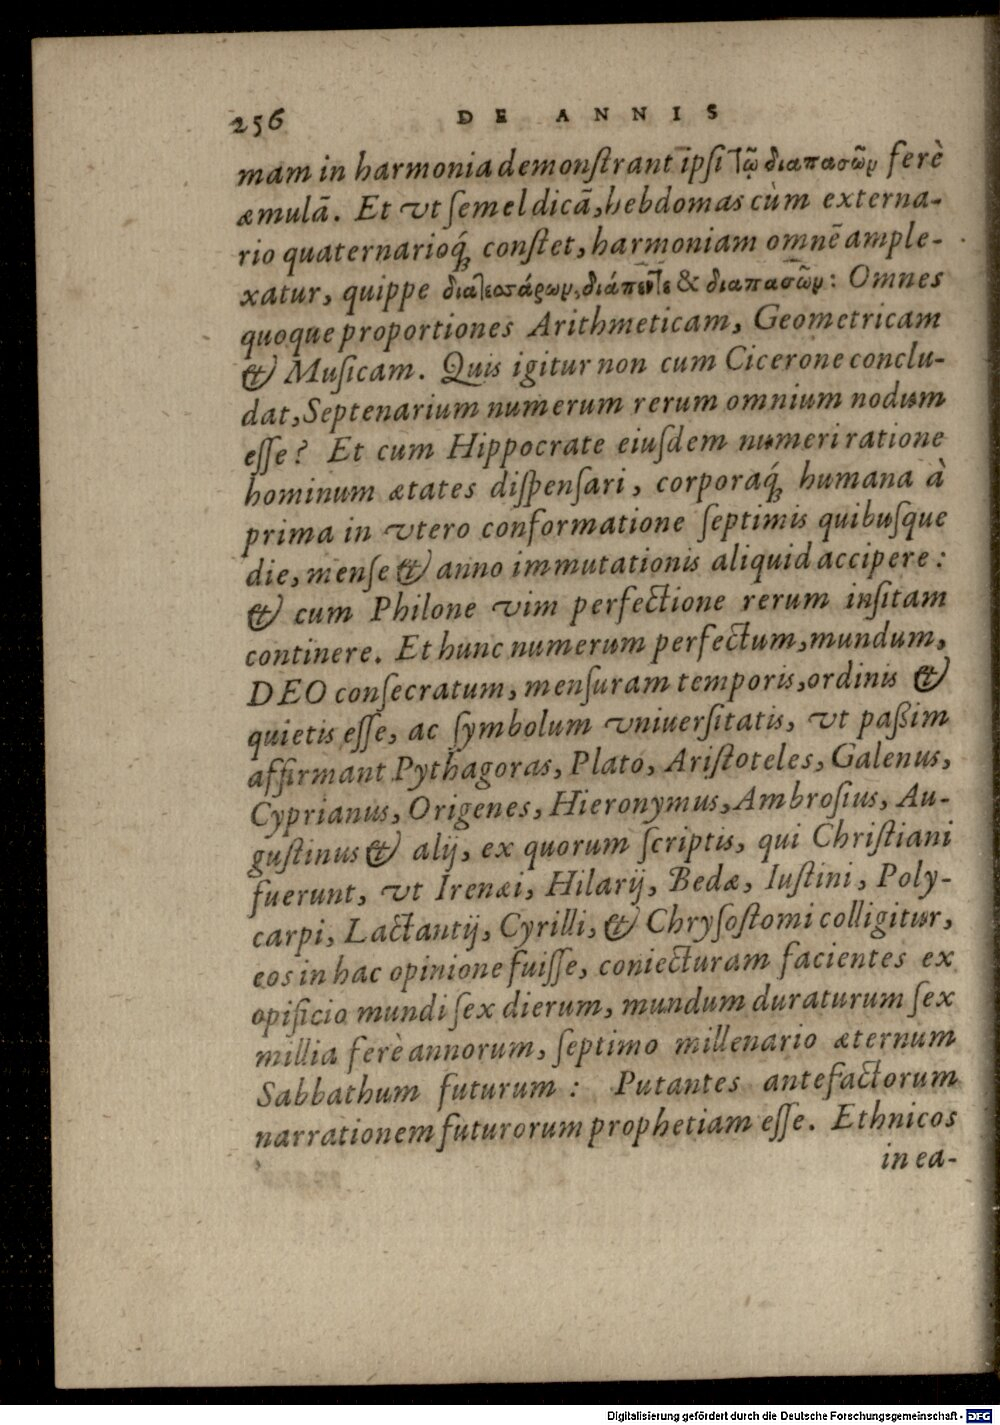 256 DE ANNIS
mam in harmonia demonſtrant ipſi τῷ διαπασῶν ferè
æmulã. Et vt ſemel dicã, hebdomas cùm externa-
rio quaternarioq́ꝫ conſtet, harmoniam omnẽ ample-
xatur, quippe διατεσσάρων, διάπεντε & διαπασῶν: Omnes
quoque proportiones Arithmeticam, Geometricam
& Muſicam. Quis igitur non cum Cicerone conclu-
dat, Septenarium numerum rerum omnium nodum
eſſe? Et cum Hippocrate eiuſdem numeri ratione
hominum ætates diſpenſari, corporaq́ꝫ humana à
prima in vtero conformatione ſeptimis quibuſque
die, menſe & anno immutationis aliquid accipere:
& cum Philone vim perfectione rerum inſitam
continere. Et hunc numerum perfectum, mundum,
DEO conſecratum, menſuram temporis, ordinis &
quietis eſſe, ac ſymbolum vniuerſitatis, vt paßim
affirmant Pythagoras, Plato, Ariſtoteles, Galenus,
Cyprianus, Origenes, Hieronymus, Ambroſius, Au-
guſtinus & alij, ex quorum ſcriptis, qui Chriſtiani
fuerunt, vt Irenæi, Hilarij, Bedæ, Iuſtini, Poly-
carpi, Lactantij, Cyrilli, & Chryſoſtomi colligitur,
eos in hac opinione fuiſſe, coniecturam facientes ex
opificio mundi ſex dierum, mundum duraturum ſex
millia ferè annorum, ſeptimo millenario æternum
Sabbathum futurum: Putantes antefactorum
narrationem futurorum prophetiam eſſe. Ethnicos
in ea-
Digitalisierung gefördert durch die Deutsche Forschungsgemeinschaft - DFG